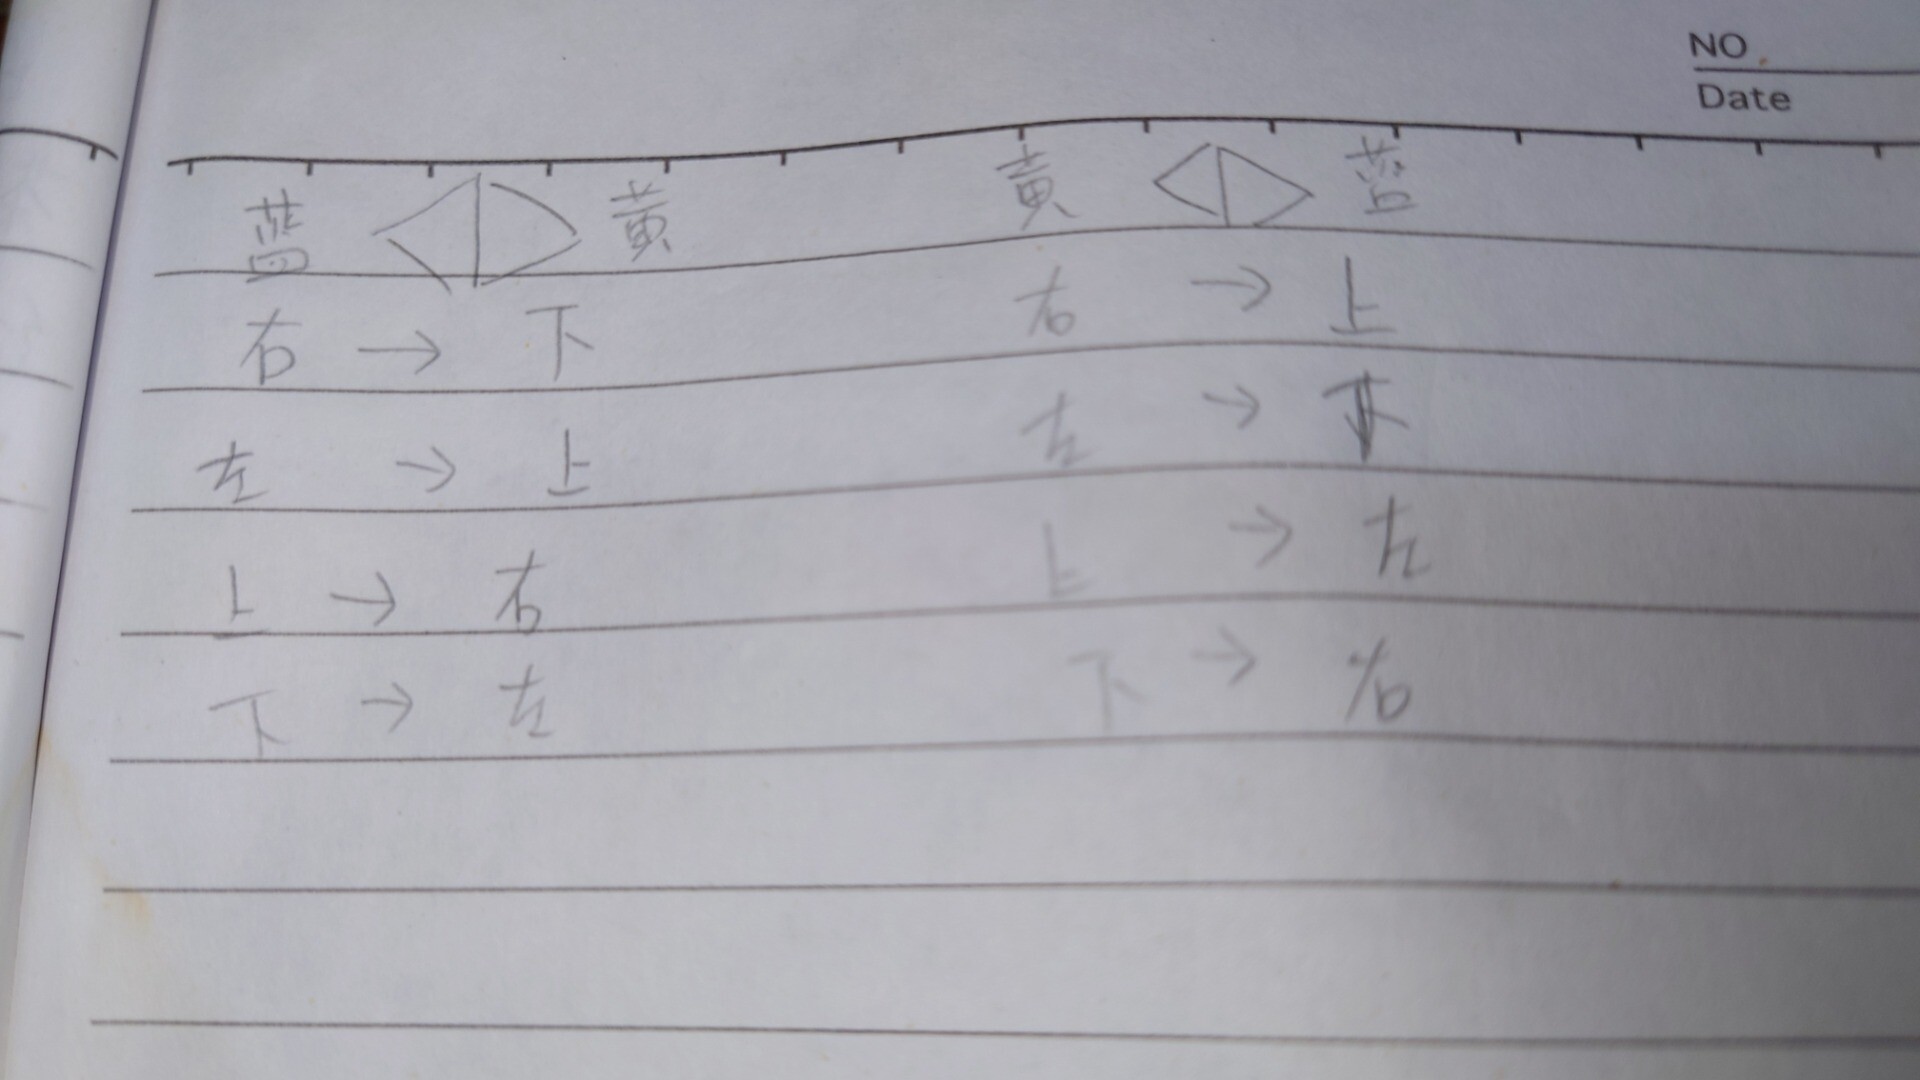 NO.
Date
蓝 黄 黄 蓝
右 → 下 右 → 上
左 → 上 左 → 下
上 → 右 上 → 左
下 → 左 下 → 右